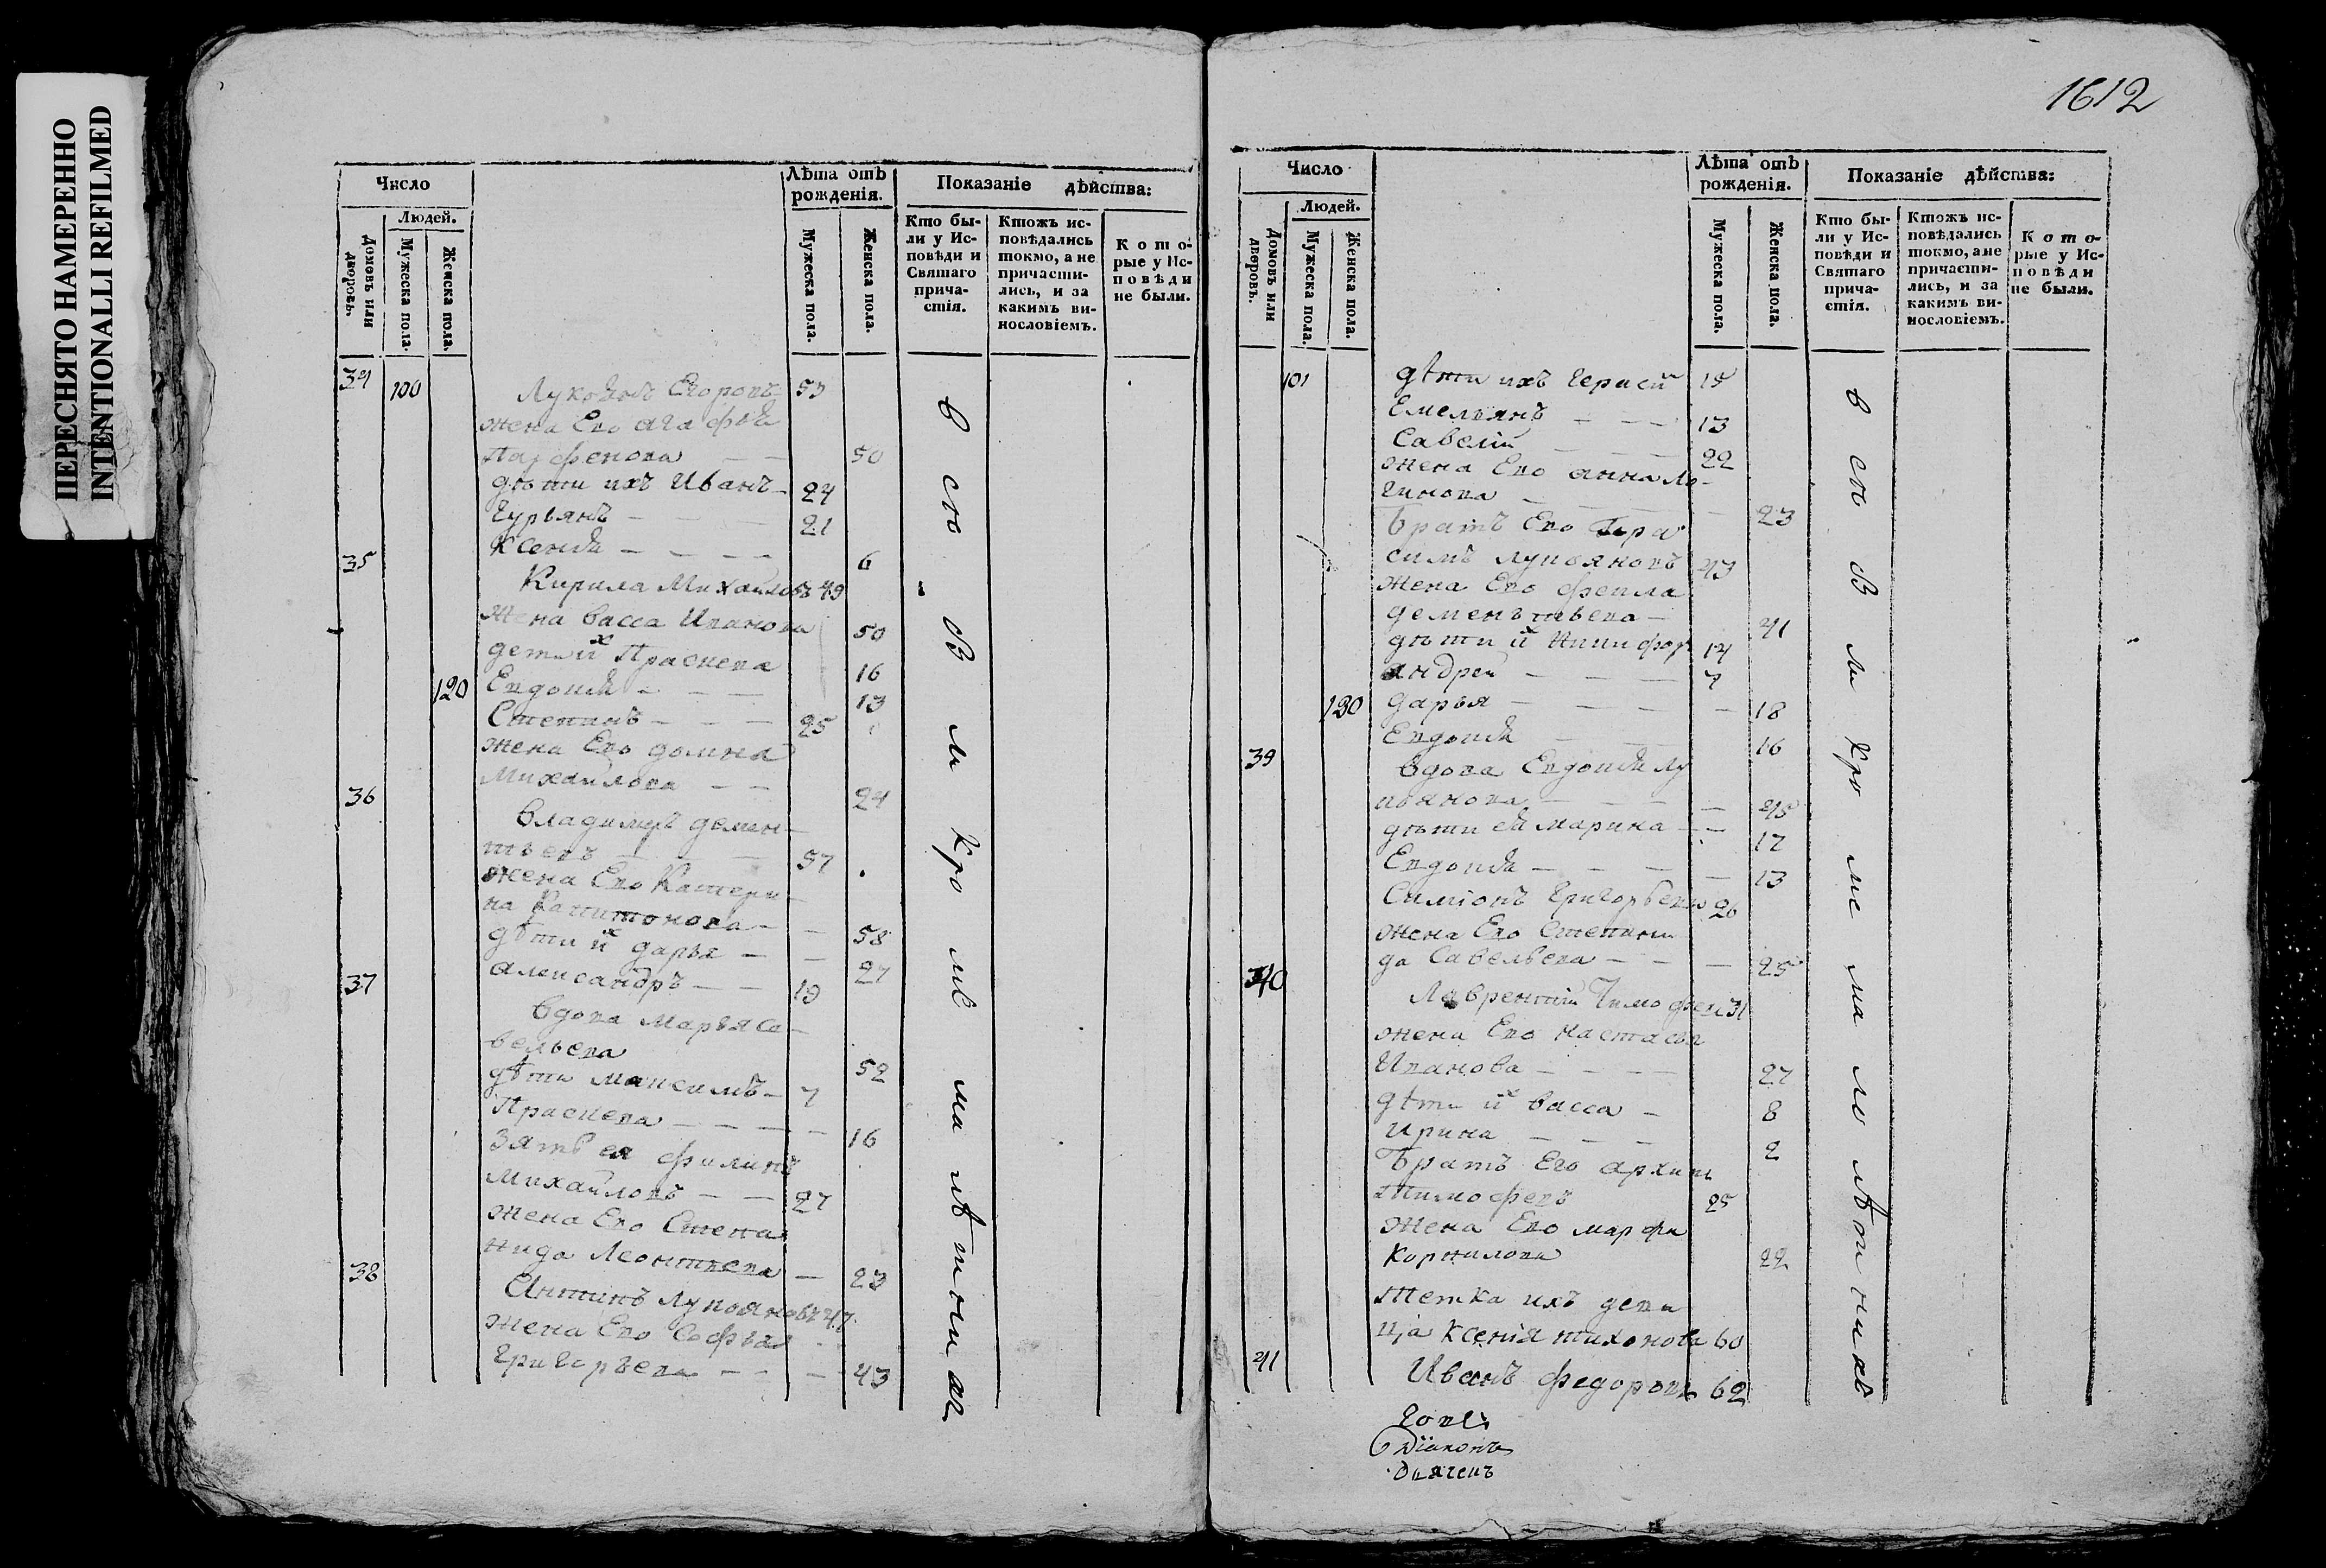 ПЕРЕСНЯТО НАМЕРЕННО
INTENTIONALLI REFILMED
Число
Людей.
Домовъ или дворовъ.
Мужеска пола.
Женска пола.
Лѣта отъ рожденія.
Мужеска пола.
Женска пола.
Показаніе дѣйства:
Кто бы-
ли у Ис-
повѣди и
Святаго
прича-
стія.
Ктожъ ис-
повѣдались
токмо, а не
причасти-
лись, и за
какимъ ви-
нословіемъ.
Кото-
рые у Ис-
повѣди
не были.
34 100 Егоровъ 53
жена Его агафья
Парфенова 50
дѣти ихъ Иванъ 24
Гурьянъ 21
Ксенья 6
35
Кирила Михайловъ 49
жена васса Иванова 50
дети их Прасковя 16
120 Евдокия 13
Степанъ 25
жена Его домна
Михайлова 24
36
Владимеръ демен-
тьевъ 57
жена Его Катери-
на Капитонова 58
дѣти их дарья 27
александръ 19
37
вдова Марья Са-
вельева 52
дѣти Максимъ 7
Прасковя 16
Зять ея филипъ
Михайловъ 27
жена Его Степа
нида Леонтьева 23
38
Антипъ Лупояновъ 47
жена Его Софья
Григорьева 43
всѣ
кромѣ
малѣтних
1612
Число
Людей.
Домовъ или дворовъ.
Мужеска пола.
Женска пола.
Лѣта отъ
рожденія.
Мужеска пола.
Женска пола.
Показаніе дѣйства:
Кто бы-
ли у Ис-
повѣди и
Святаго
прича-
стія.
Ктожъ ис-
повѣдались
токмо, а не
причасти-
лись, и за
какимъ ви-
нословіемъ.
Кото-
рые у Ис-
повѣди
не были.
101 дѣти ихъ 15
Емельянъ 13
Савелій 22
жена Его анна Ло-
гинова 23
Братъ Его Гера
симъ лупояновъ 43
жена Его фекла
дементьева 41
дѣти их Никифор 14
андрей 7
130 дарья 18
Евдокия 16
39
вдова Евдокия Лу
пьянова 45
дѣти ей марина 17
Евдокия 13
Симіонъ Григорьевъ 26
жена Его Степани
да Савельева 25
40
Лаврентий Тимофеи 31
жена Его настасья
Иванова 27
дѣти их васса 8
ирина 2
Братъ Его архипъ
тимофевъ 25
жена Его марфа
Корнилова 22
Тетка ихъ деви
ца Ксенія тихонова 60
41
Иванъ федоровъ 62
Діаконъ